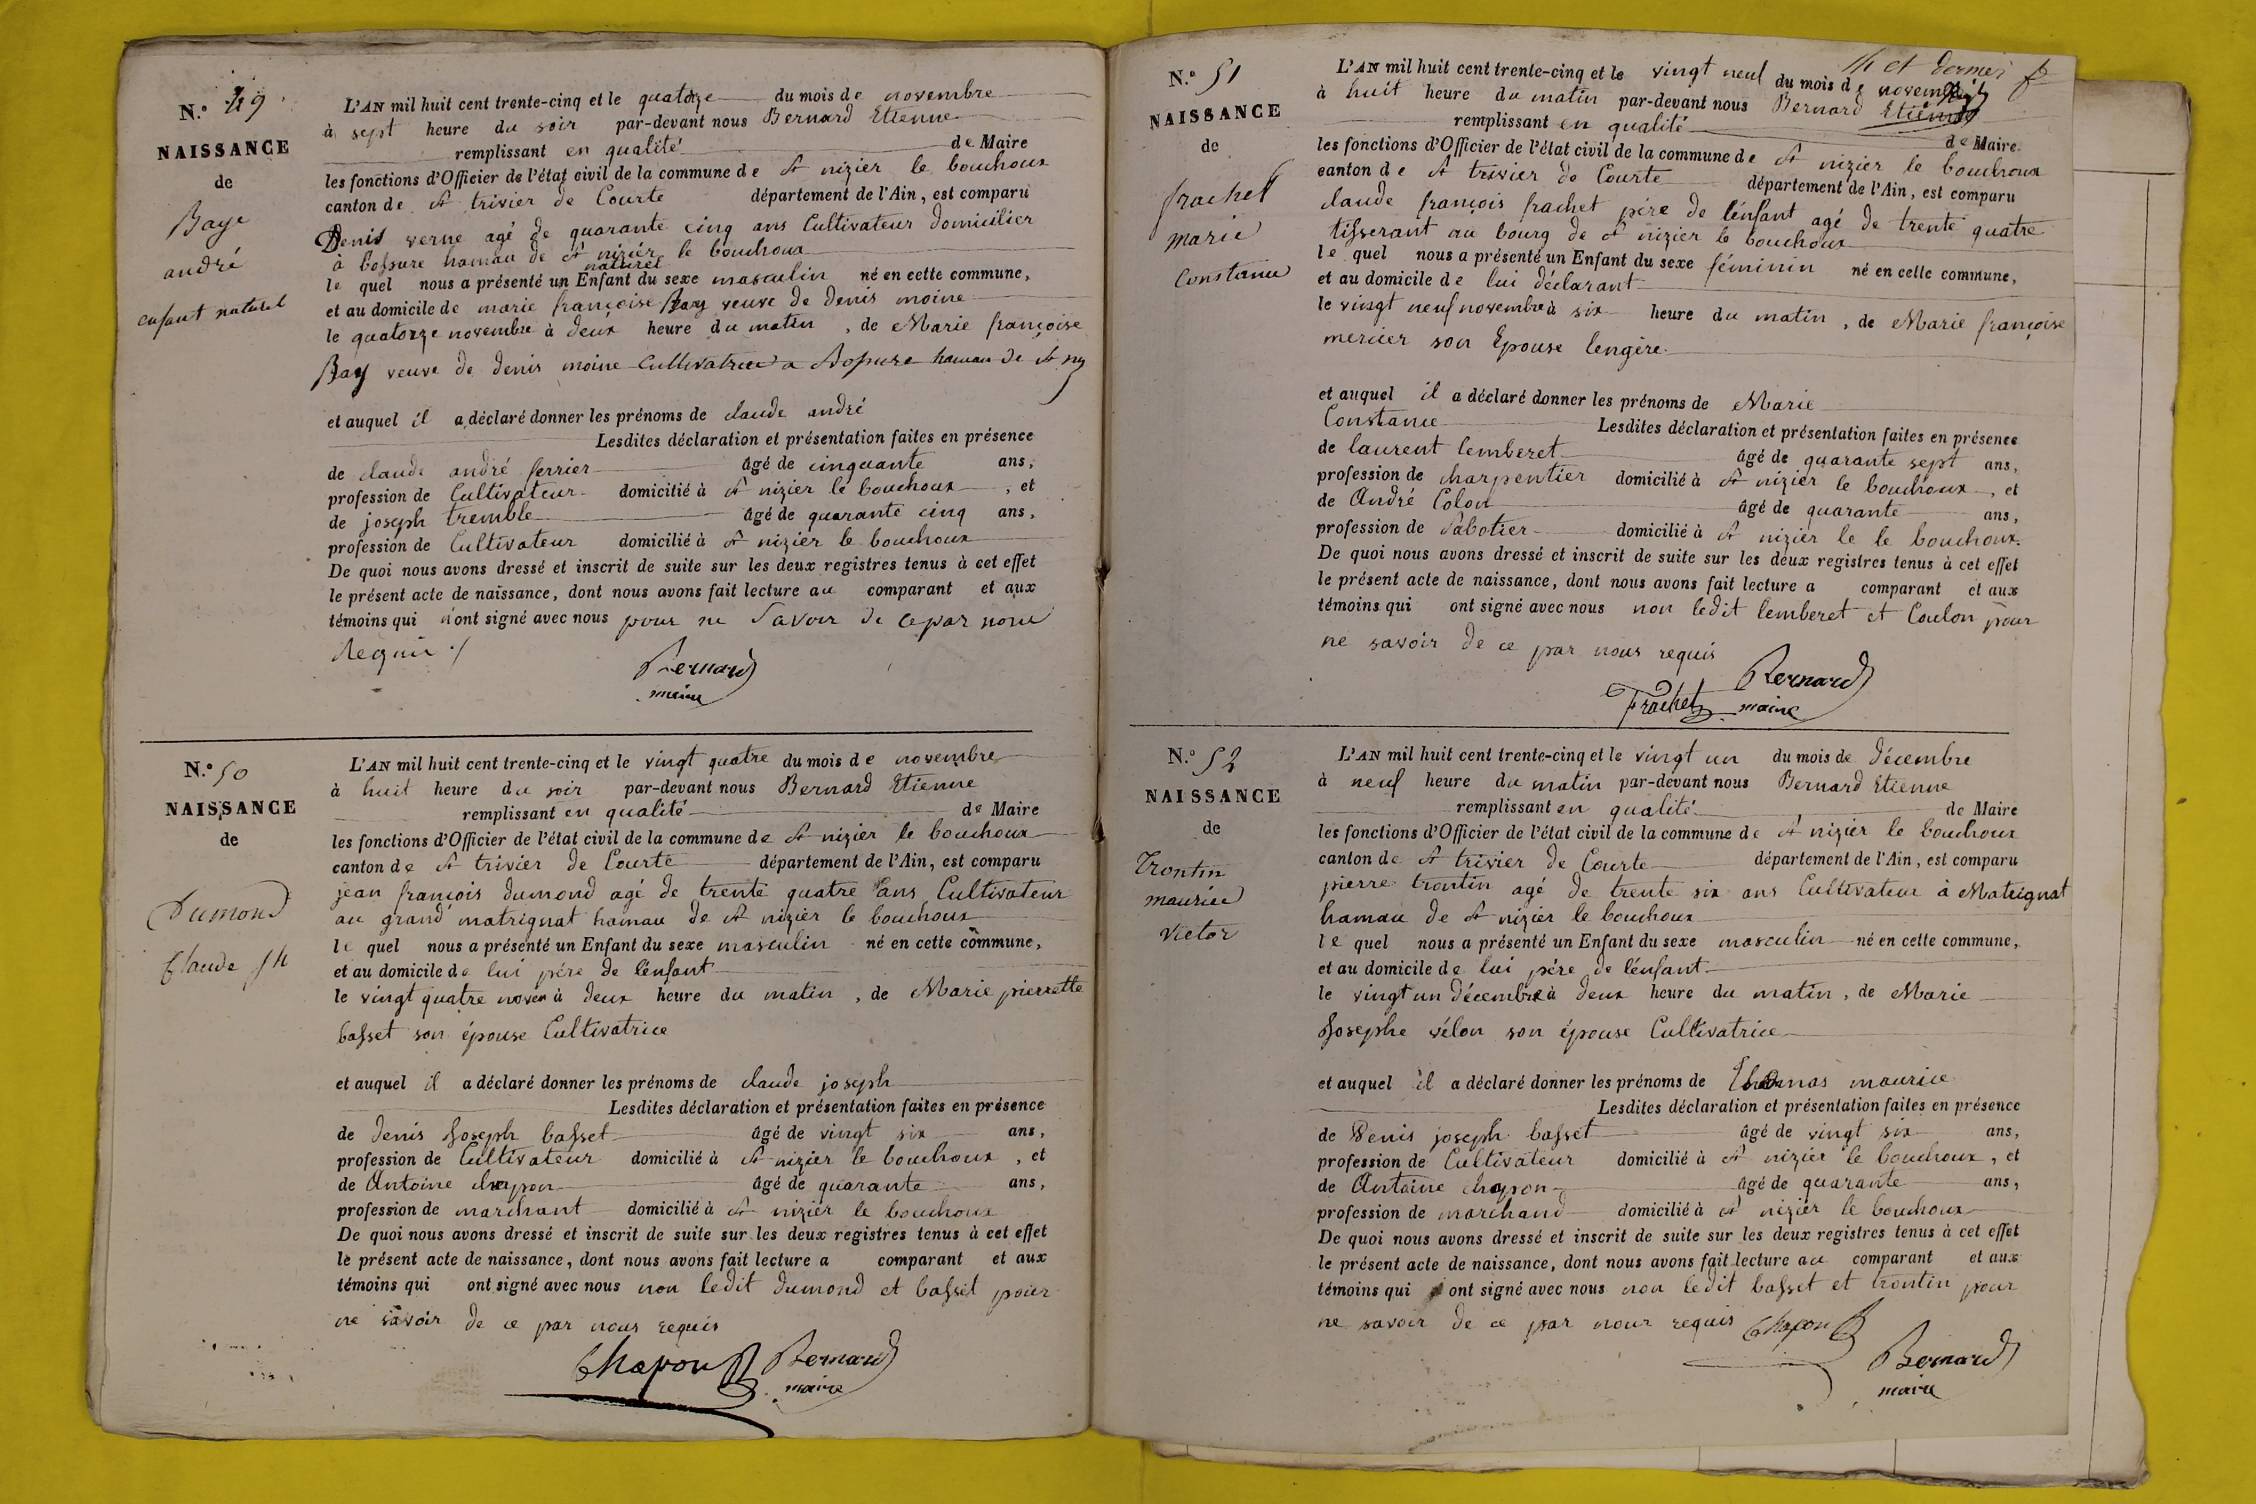 N.° 49
NAISSANCE
de
Baye
andré
enfant naturel
L'AN mil huit cent trente-cinq et le quatorze du mois de novembre
à sept heure du soir par-devant nous Bernard Etienne
remplissant en qualité de Maire
les fonctions d'Officier de l'état civil de la commune de St nizier le bouchoux
canton de St trivier de Courte département de l'Ain, est comparu
Denis verne agé de quarante cinq ans Cultivateur domicilier
à bossure hamau de St nizier le bouchoux
naturel
le quel nous a présenté un Enfant du sexe masculin né en cette commune,
et au domicile de marie françoise Bay veuve de denis moine
le quatorze novembre à deux heure du matin, de Marie françoise
Bay veuve de denis moine Cultivatrice a hamau de St
et auquel il a déclaré donner les prénoms de claude andré
Lesdites déclaration et présentation faites en présence
de claude andré ferrier âgé de cinquante ans,
profession de Cultivateur domicilié à St nizier le bouchoux, et
de joseph tremble âgé de quarante cinq ans,
profession de Cultivateur domicilié à St nizier le bouchoux
De quoi nous avons dressé et inscrit de suite sur les deux registres tenus à cet effet
le présent acte de naissance, dont nous avons fait lecture au comparant et aux
témoins qui n'ont signé avec nous pour ne Savoir de ce par nous
Requis ./
Bernard
maire
N.° 50
NAISSANCE
de
Dumond
Claude jh
L'AN mil huit cent trente-cinq et le vingt quatre du mois de novembre
à huit heure du soir par-devant nous Bernard Etienne
remplissant en qualité de Maire
les fonctions d'Officier de l'état civil de la commune de St nizier le bouchoux
canton de St trivier de Courte département de l'Ain, est comparu
jean françois dumond agé de trente quatre ans Cultivateur
au grand matrignat hamau de St nizier le bouchoux
le quel nous a présenté un Enfant du sexe masculin né en cette commune,
et au domicile de lui pére de l'énfant
le vingt quatre novem à deux heure du matin, de Marie pierrette
basset son épouse Cultivatrice
et auquel il a déclaré donner les prénoms de claude joseph
Lesdites déclaration et présentation faites en présence
de denis Joseph basset âgé de vingt six ans,
profession de Cultivateur domicilié à St nizier le bouchoux, et
de Antoine chapon âgé de quarante ans,
profession de marchant domicilié à St nizier le bouchoux
De quoi nous avons dressé et inscrit de suite sur les deux registres tenus à cet effet
le présent acte de naissance, dont nous avons fait lecture a comparant et aux
témoins qui ont signé avec nous non ledit dumond et basset pour
ne savoir de ce par nous requis
Chapon Bernard
maire
et dernier
N.° 51
NAISSANCE
de
frachet
marie
Constance
L'AN mil huit cent trente-cinq et le vingt neuf du mois de novembre
à huit heure du matin par-devant nous Bernard Etienne
remplissant en qualité de Maire
les fonctions d'Officier de l'état civil de la commune de St nizier le bouchoux
canton de St trivier de Courte département de l'Ain, est comparu
claude françois frachet pére de l'énfant agé de trente quatre
tisserant au bourg de St nizier le bouchoux
le quel nous a présenté un Enfant du sexe féminin né en cette commune,
et au domicile de lui déclarant
le vingt neuf novembre à six heure du matin, de Marie françoise
mercier son Epouse lengère
et auquel il a déclaré donner les prénoms de Marie
Constance Lesdites déclaration et présentation faites en présence
de laurent lemberet âgé de quarante sept ans,
profession de charpentier domicilié à St nizier le bouchoux, et
de André Colon âgé de quarante ans,
profession de Sabotier domicilié à St nizier le le bouchoux.
De quoi nous avons dressé et inscrit de suite sur les deux registres tenus à cet effet
le présent acte de naissance, dont nous avons fait lecture a comparant et aux
témoins qui ont signé avec nous non ledit lemberet et Coulon pour
ne savoir de ce par nous requis
Bernard
Frachet maire
N.° 52
NAISSANCE
de
Trontin
maurice
victor
L'AN mil huit cent trente-cinq et le vingt un du mois de décembre
à neuf heure du matin par-devant nous Bernard Etienne
remplissant en qualité de Maire
les fonctions d'Officier de l'état civil de la commune de St nizier le bouchoux
canton de St trivier de Courte département de l'Ain, est comparu
pierre trontin agé de trente six ans Cultivateur à Matrignat
hamau de St nizier le bouchoux
le quel nous a présenté un Enfant du sexe masculin né en cette commune,
et au domicile de lui pére de l'énfant
le vingt un décembre à deux heure du matin, de Marie
Josephe vélon son épouse Cultivatrice
et auquel il a déclaré donner les prénoms de Thomas maurice
Lesdites déclaration et présentation faites en présence
de Denis joseph basset âgé de vingt six ans,
profession de Cultivateur domicilié à St nizier le bouchoux, et
de Antoine chapon âgé de quarante ans,
profession de marchand domicilié à St nizier le bouchoux
De quoi nous avons dressé et inscrit de suite sur les deux registres tenus à cet effet
le présent acte de naissance, dont nous avons fait lecture au comparant et aux
témoins qui ont signé avec nous non ledit basset et trontin pour
ne savoir de ce par nous requis Chapon
Bernard
maire